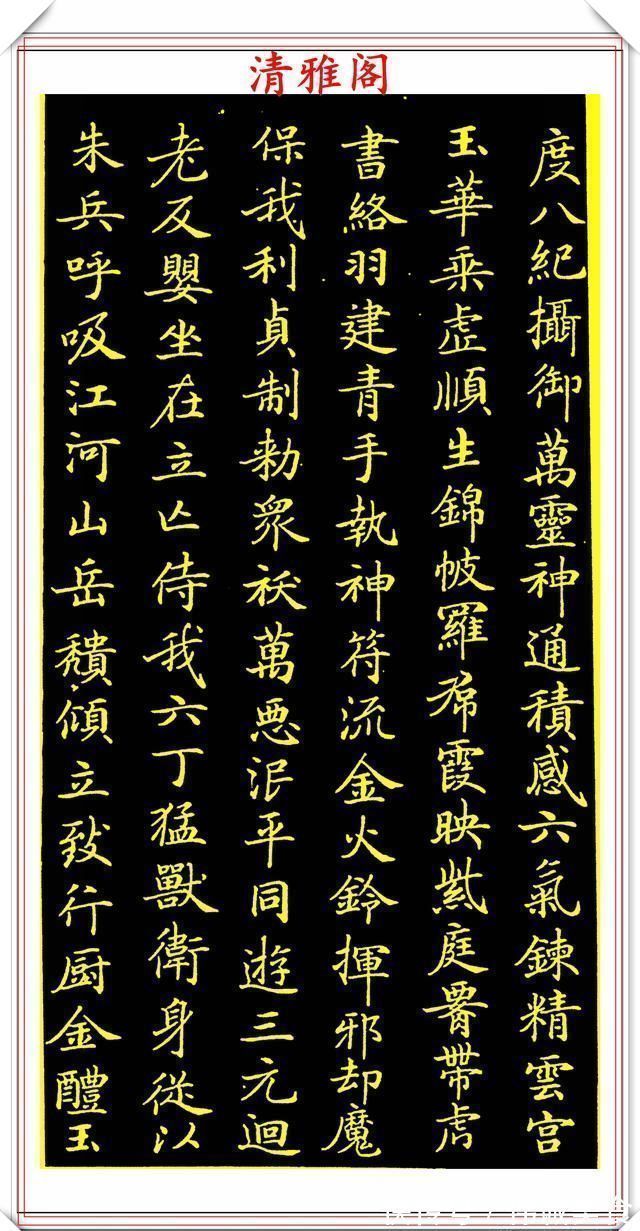 清雅阁
度八紀攝御萬靈神通積感六氣鍊精雲宮
玉華乘虛順生錦帔羅帬霞映紫庭腎帶虎
書絡羽建青手執神符流金火鈴揮邪却魔
保我利貞制勑眾祅萬惡泯平同遊三元迴
老反嬰坐在立亡侍我六丁猛獸衛身從以
朱兵呼吸江河山岳穨傾立致行厨金醴玉